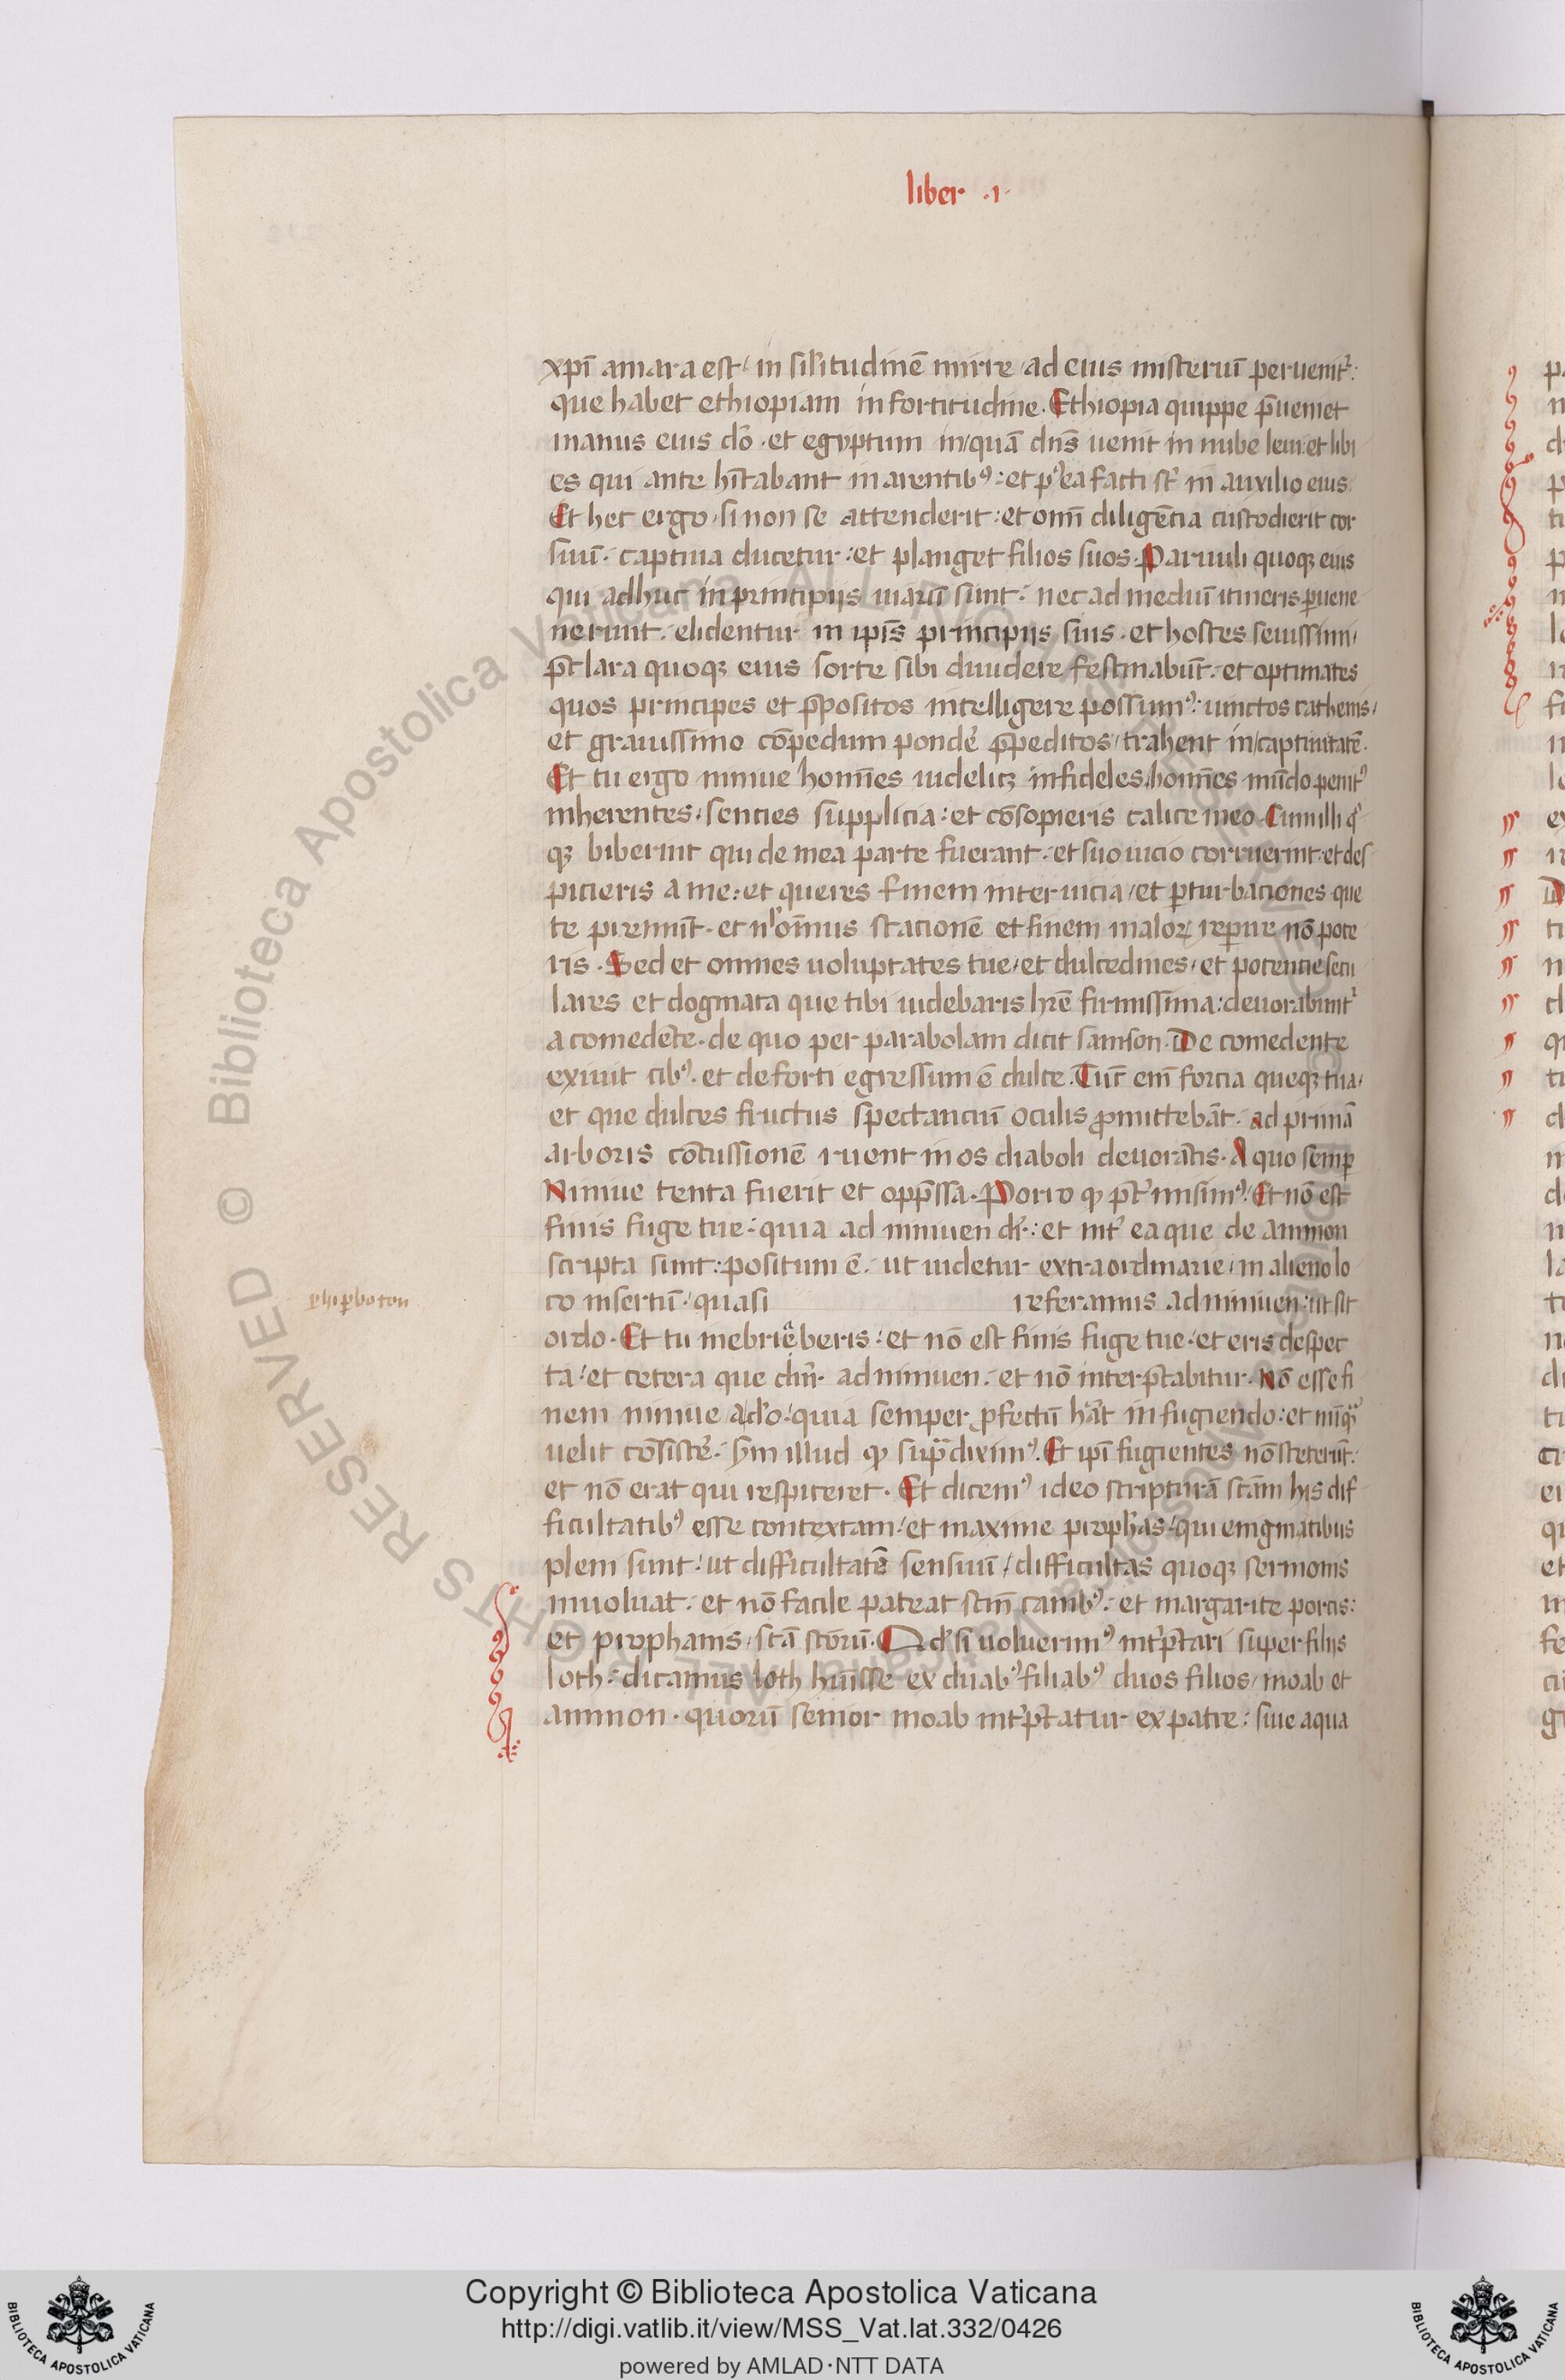 liber ·1·
xpī amara est / in silitudinē mirre / ad eius misteriū peruenit᷑:
que habet ethiopiam in fortitudine. Ethiopia quippe p̄ueniet
manus eius do̓ · et egyptum in quā dn̄s uenit in nube leui: et libi
es qui ante hītabant in arentibꝰ: et p̓ea facti st̄ in auxilio eius.
Et hec ergo · si non se attenderit: et omī diligētia custodierit cor
suū · captiua ducetur: et planget filios suos. Paruuli quoqꝫ eius
qui adhuc in principijs uiarū sunt: nec ad mediū itineris ꝑuene
nerunt / elidentur in ipīs principijs suis · et hostes seuissimi /
p̄clara quoqꝫ eius sorte sibi diuidere festinabūt: et optimates
quos principes et p̄positos intelligere possumꝰ: uinctos cathenis /
et grauissimo cōpedum ponde̓ p̄peditos / trahent in captiuitatē.
Et tu ergo niniue homīes uidelicꝫ infideles / homīes mūdo penitꝰ
inherentes / senties supplicia: et cōsopieris calice meo. Cum illi qͦ
qꝫ biberint qui de mea parte fuerant: et suo uicio corruerint: et des
picieris a me: et queres finem inter uicia / et ꝑturbaciones que
te premūt · et nͥlomīus stacionē et finem maloꝝ reꝑire nō pote
ris. Sed et omnes uoluptates tue / et dulcedines / et potentie secu
lares et dogmata que tibi uidebaris hr̄e firmissima: deuorabunt᷑
a comedēte · de quo per parabolam dicit samson. De comedente
exiuit cibꝰ. et de forti egressum ē dulce. Tūc em̄ forcia queqꝫ tua /
et que dulces fructus spectanciū oculis ꝓmittebāt · ad primā
arboris cōcussionē ruent in os diaboli deuorātis. A quo semꝑ
Niniue tenta fuerit et opp̄ssa. Porro qͥ p̄t᷑misimꝰ. Et nō est
finis fuge tue: quia ad niniuen dr̄: et int᷑ ea que de ammon
scripta sunt: positum ē / ut uidetur extraordinarie / in alieno lo
co insertū / quasi referamus ad niniuen: ut sit
phiꝑboton
ordo. Et tu inebriēberis: et nō est finis fuge tue: et eris despec
ta: et cetera que dn̄r ad niniuen: et nō interp̄tabitur. Nō esse fi
nem niniue a do̓: quia semper ꝓfectū hāt in fugiendo: et nūqᷓ
uelit cōsiste̓: sm̄ illud qͥ supᷓ diximꝰ. Et ipī fugientes nō steterūt:
et nō erat qui respiceret. Et dicemꝰ ideo scripturā scām his dif
ficultatibꝰ esse contextam / et maxime prophās / qui enigmatibus
pleni sunt: ut difficultatē sensuū / difficultas quoqꝫ sermonis
inuoluat: et nō facile pateat scm̄ canibꝰ: et margarite porcis:
et prophanis / scā scōrū. Qd̓ si uoluerimꝰ int᷑p̄tari super filijs
loth: dicamus loth huisse ex duabꝰ filiabꝰ duos filios / moab et
ammon · quorū senior moab int᷑p̄tatur ex patre: siue aqua
Copyright © Biblioteca Apostolica Vaticana
http://digi.vatlib.it/view/MSS_Vat.lat.332/0426
powered by AMLAD·NTT DATA